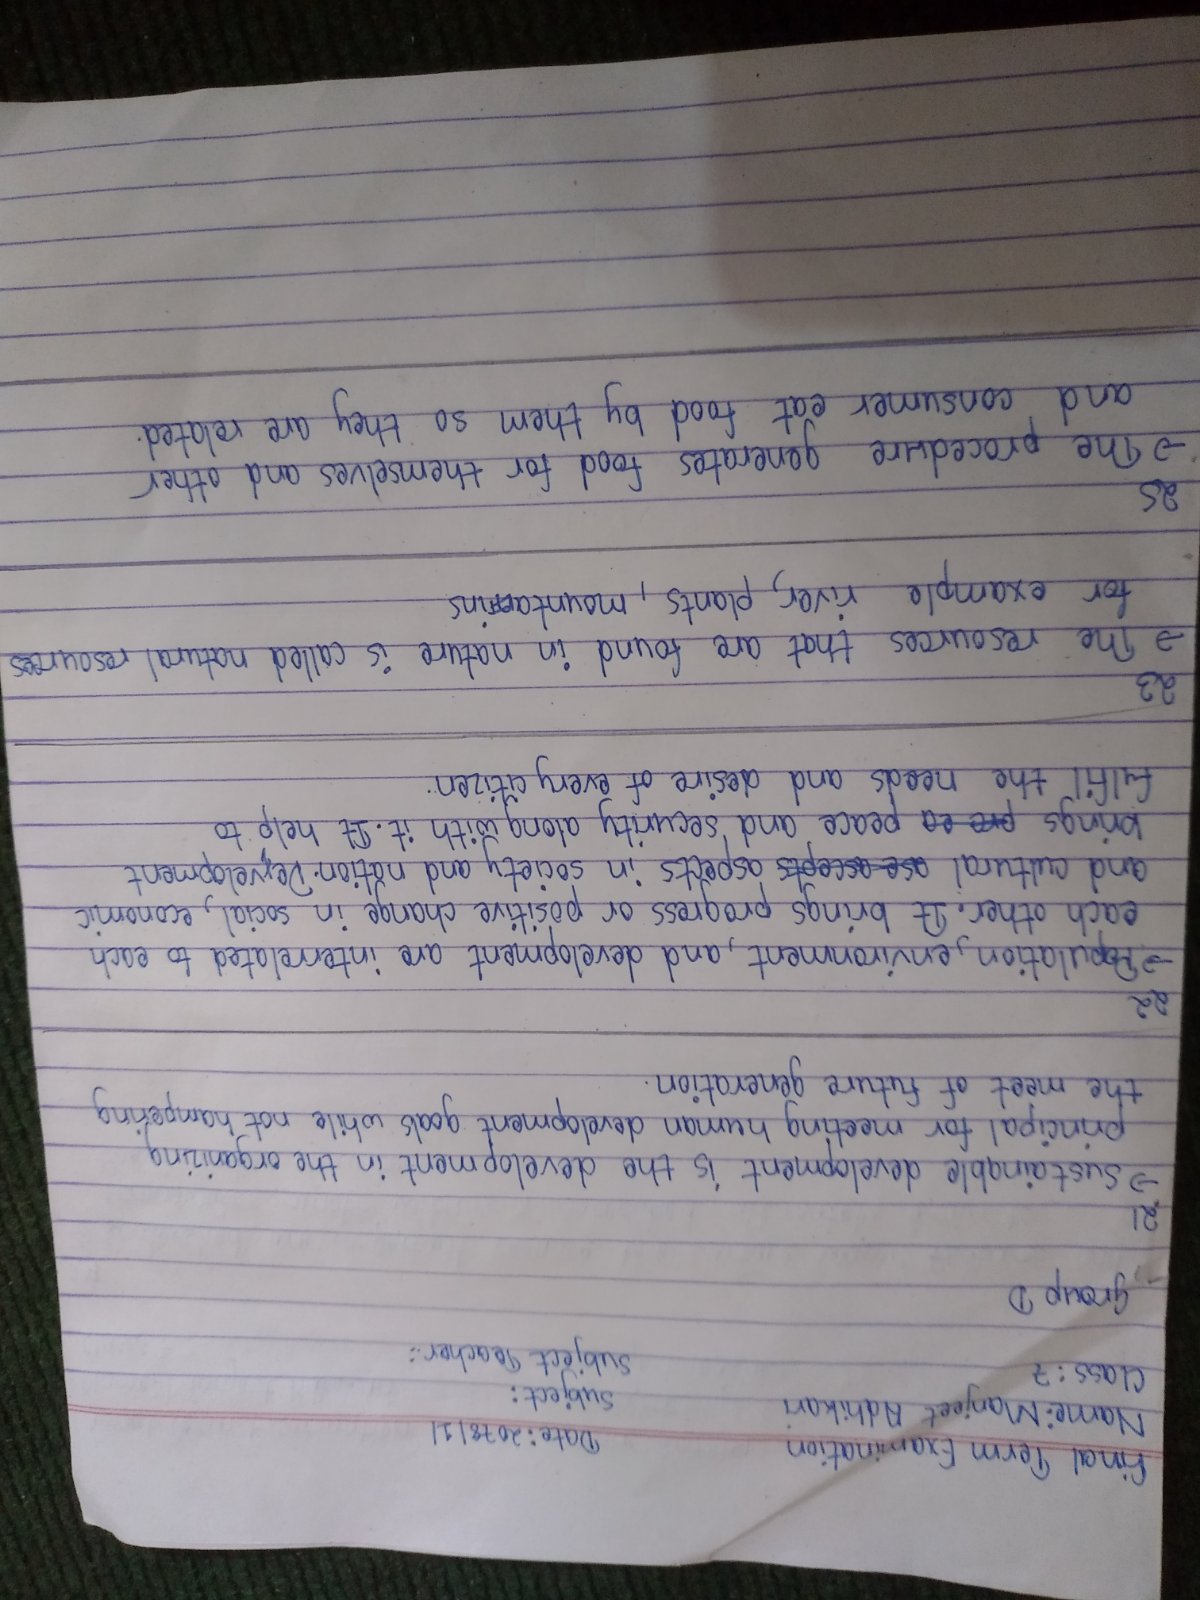 Final Term Examination
Date: 2078/1/
Name: Manjeet Adhikari
Subject:
Class: 7
Subject Teacher:
group D
21
→ Sustainable development is the development in the organizing
principal for meeting human development goals while not hampering
the meet of future generation.
22
→ Population, environment, and development are interrelated to each
each other. It brings progress or positive change in social, economic
and cultural aspects in society and nation. Development
brings peace and security along with it. It help to
fulfil the needs and desire of every citizen.
23
→ The resources that are found in nature is called natural resources
for example river, plants, mountains
25
→ The procedure generates food for themselves and other
and consumer eat food by them so they are related.